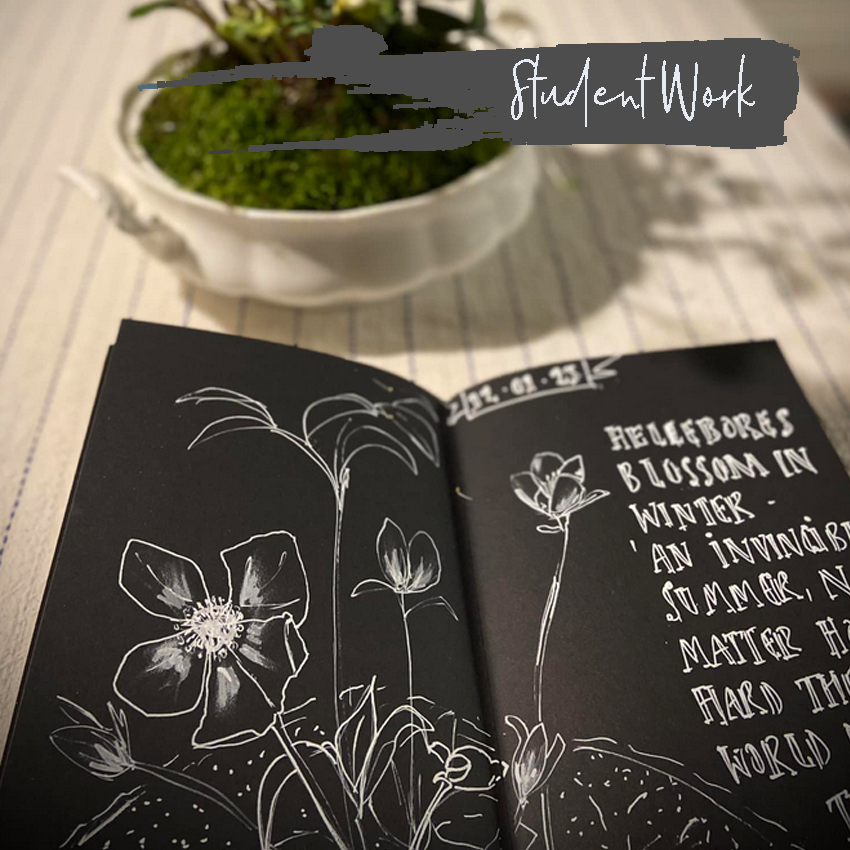 Student Work
HELLEBORES
BLOSSOM IN
WINTER -
'AN INVINCIB
SUMMER, N
MATTER HO
HARD THE
WORLD